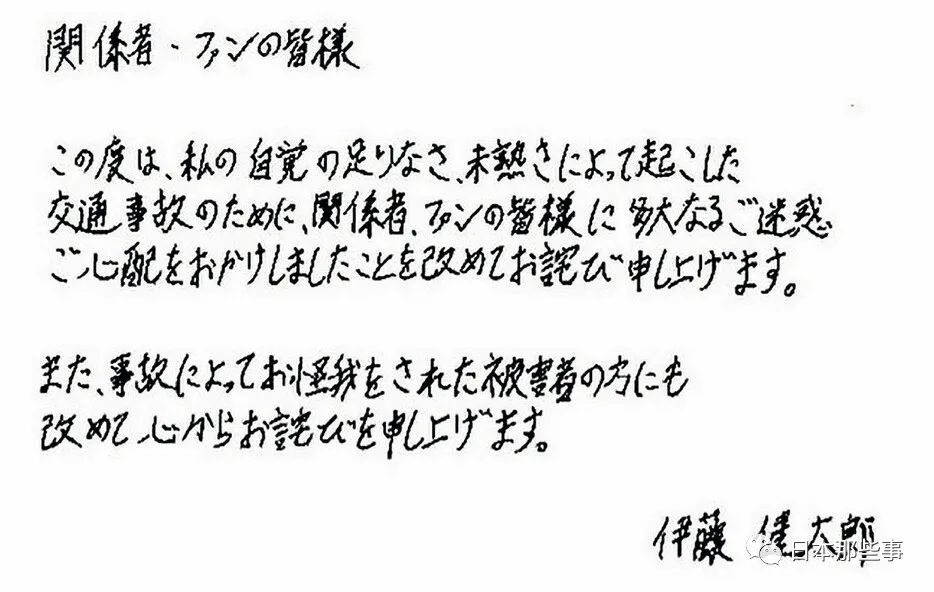 関係者・ファンの皆様
この度は、私の自覚の足りなさ、未熟さによって起こした
交通事故のために、関係者、ファンの皆様に多大なるご迷惑
ご心配をおかけしましたことを改めてお詫び申し上げます。
また、事故によってお怪我をされた被害者の方にも
改めて心からお詫びを申し上げます。
伊藤健太郎
日本那些事